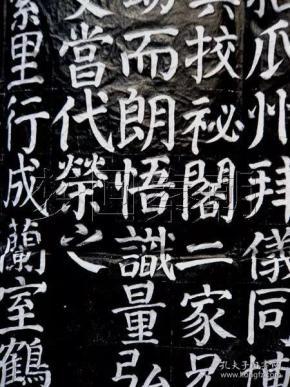 瓜州拜儀同博
典校祕閣二家兄
幼而朗悟識量弘
當代榮之
素里行成蘭室鶴
孔夫子旧书网